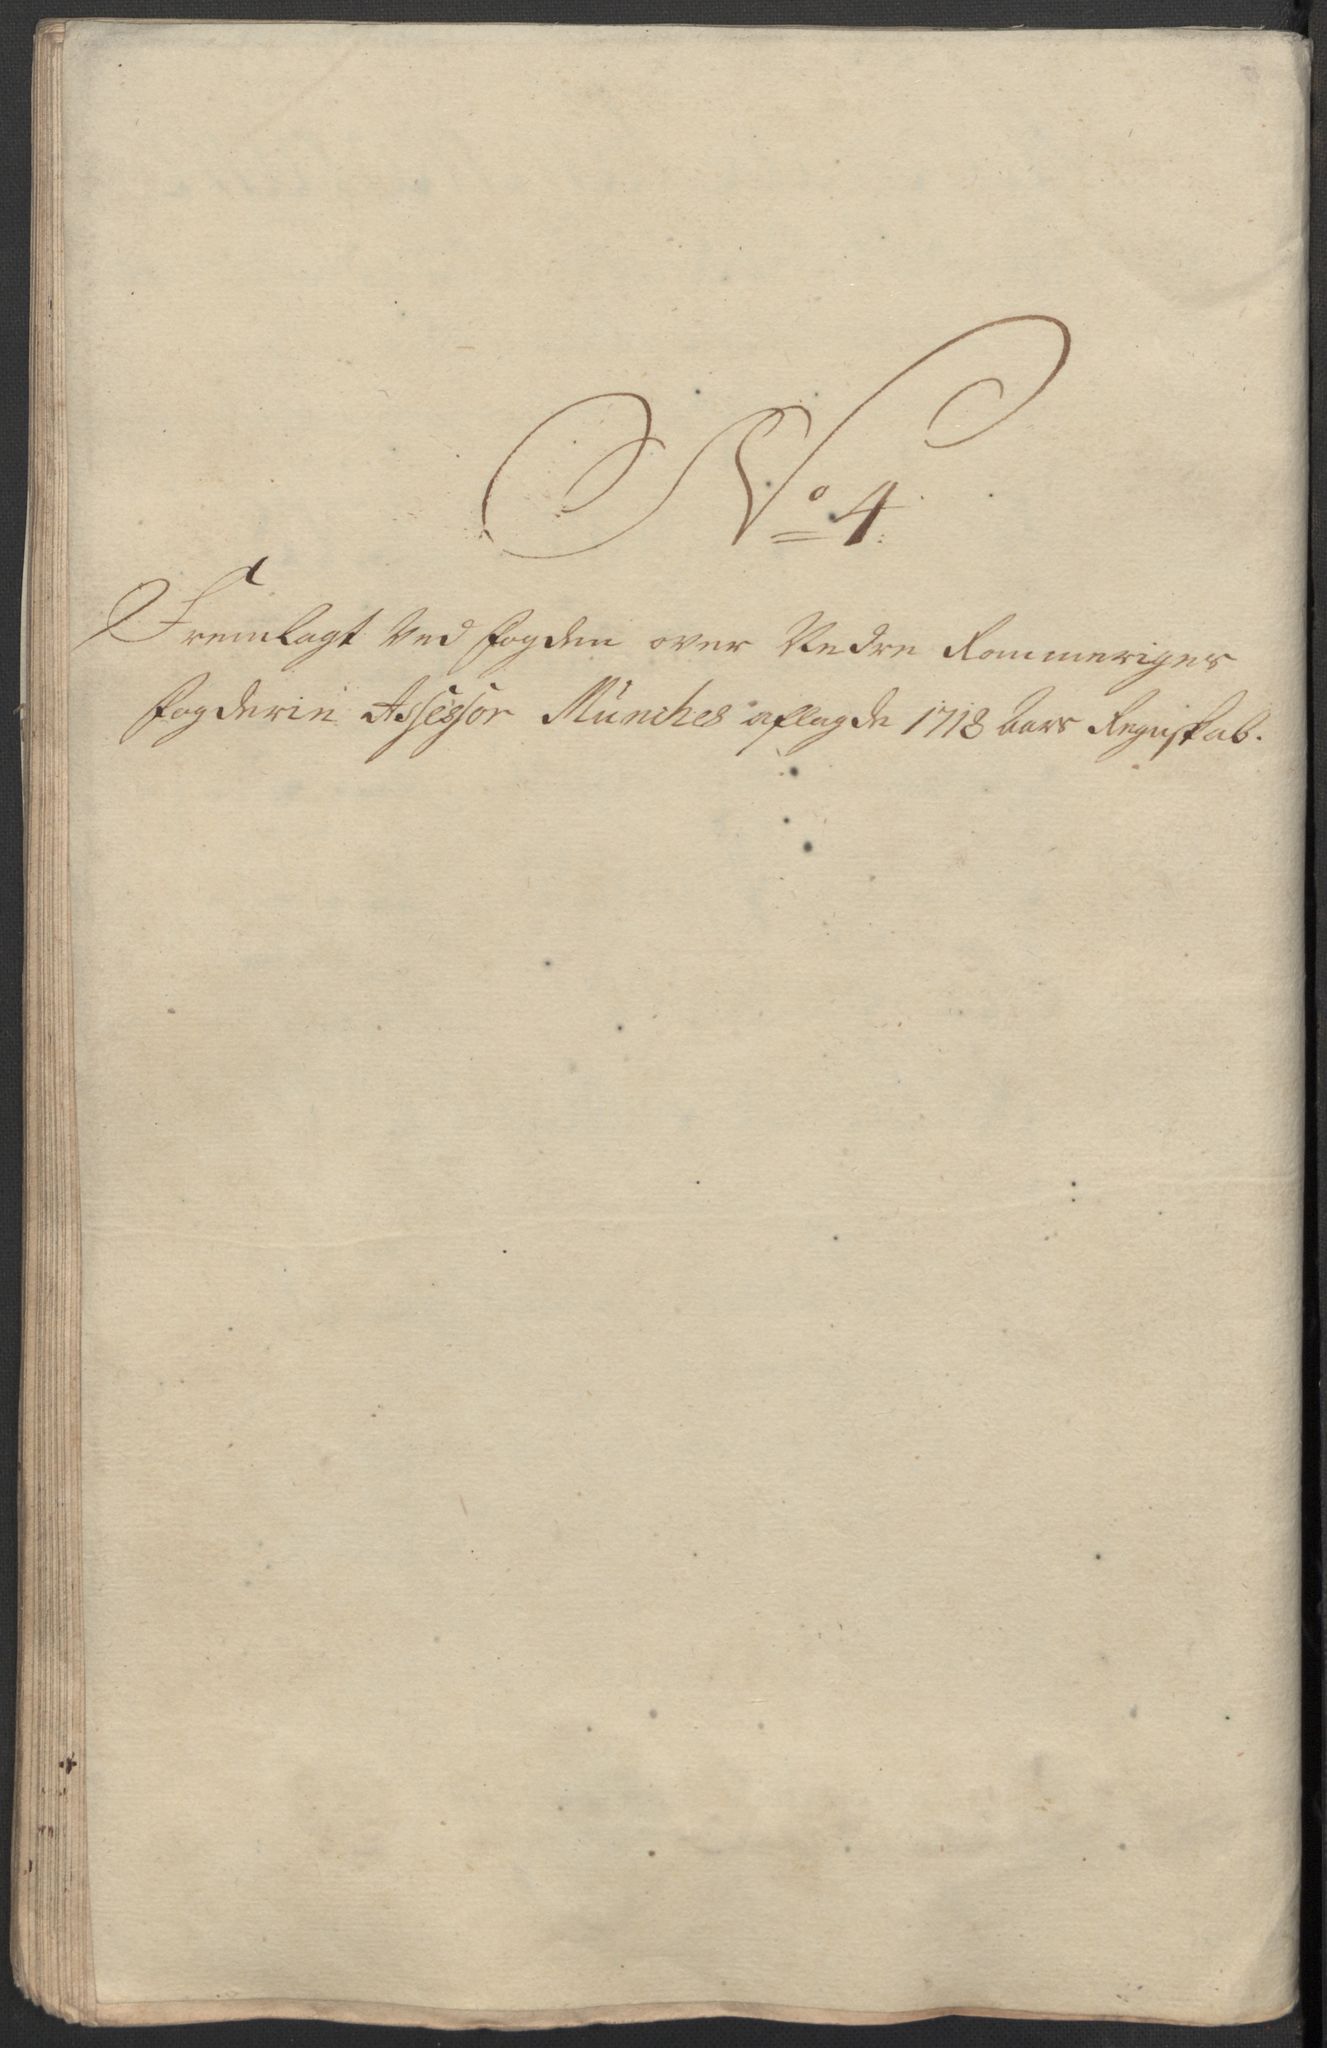 No 4.
Fremlagt ved fogden over Nedre Rommeriges
fogderie Assessor Münches aflagde 1718 aars Regnskab.